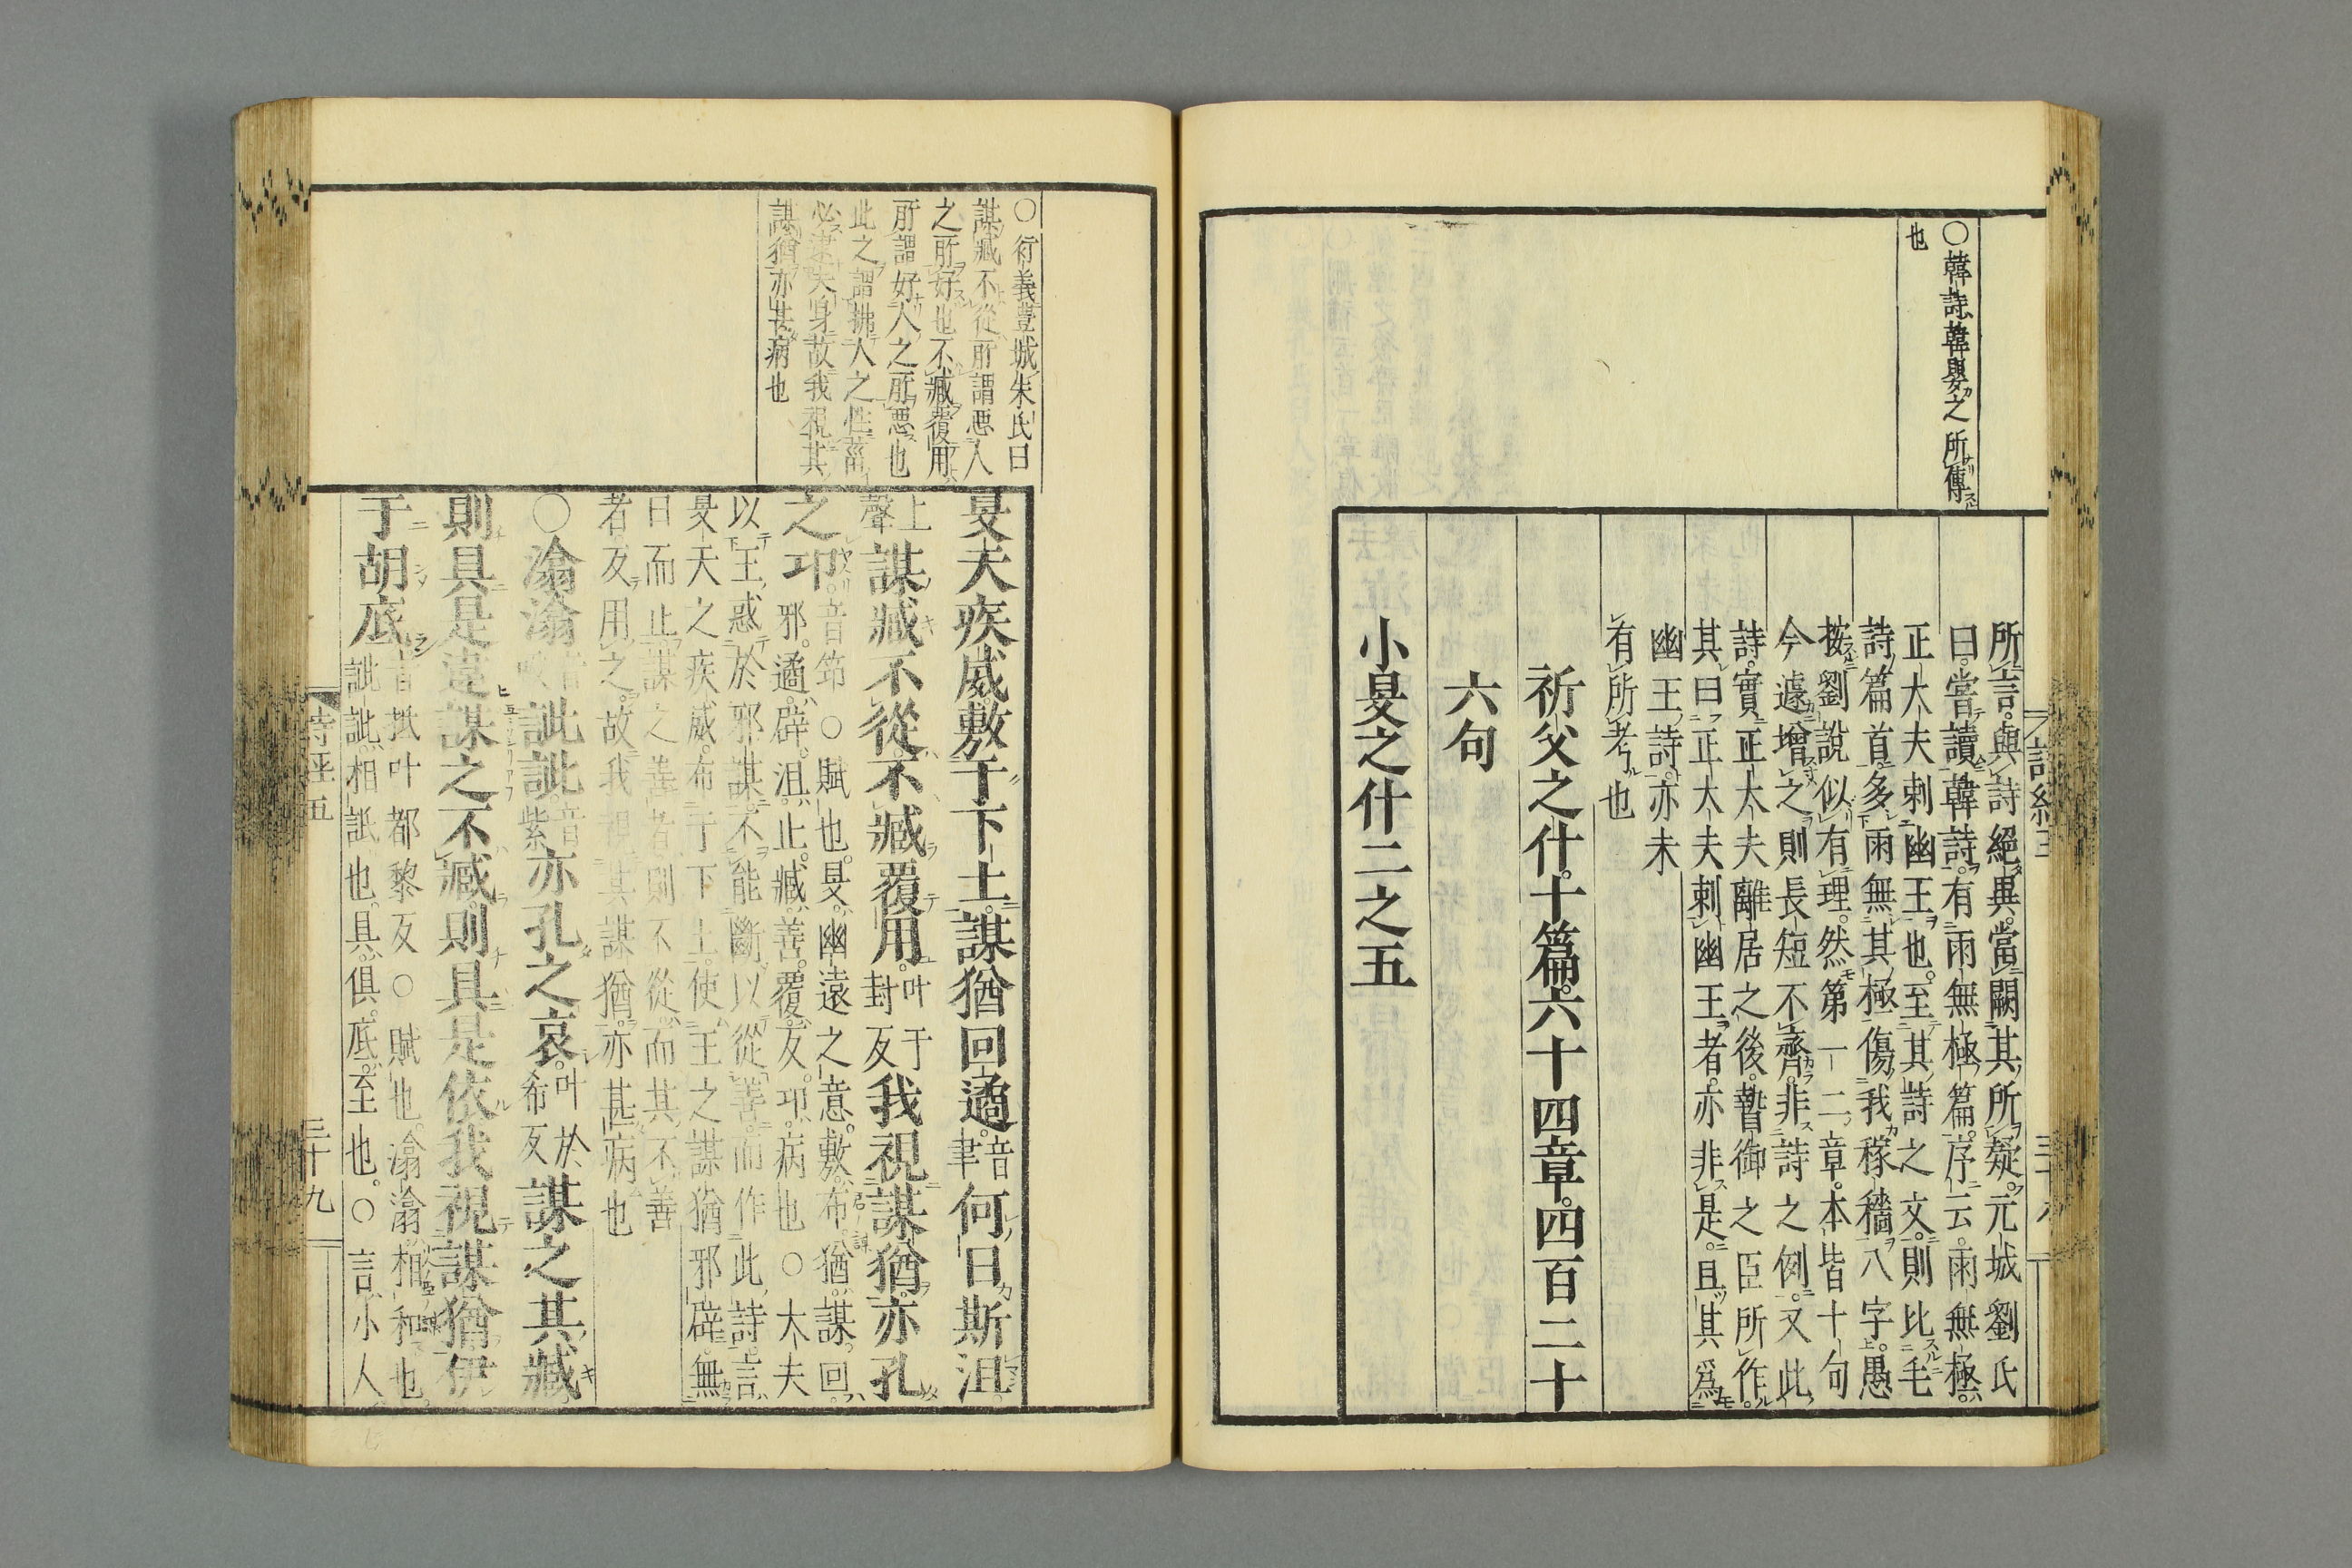 〇韓詩韓嬰之所傳
也
所言與詩絕異當闕其所疑元城劉氏
曰嘗讀韓詩有雨無極篇序云雨無極
正大夫刺幽王也至其詩之文則比毛
詩篇首多雨無其極傷我稼穡八字愚
按劉說似有理然第一二章本皆十句
今遽增之則長短不齊非詩之例又此
詩實正大夫離居之後暬御之臣所作
其曰正大夫刺幽王者亦非是且其爲
幽王詩亦未
有所考也
祈父之什十篇六十四章四百二十
六句
小旻之什二之五
〇衍義豐城朱氏曰
謀臧不從所謂惡人
之所好也不臧覆用
所謂好人之所惡也
此之謂拂人之性菑
必逮夫身故我視其
謀猶亦甚病也
旻天疾威敷于下土謀猶回遹音聿何日斯沮
上聲謀臧不從不臧覆用叶于封反我視謀猶亦孔
之邛音笻〇賦也旻幽遠之意敷布猶謀回
邪遹辟沮止臧善覆反邛病也〇大夫
以王惑於邪謀不能斷以從善而作此詩言
旻天之疾威布于下土使王之謀猶邪辟無
日而止謀之善者則不從而其不善
者反用之故我視其謀猶亦甚病也
〇潝潝音吸訿訿音紫亦孔之哀叶於希反謀之其臧
則具是違謀之不臧則具是依我視謀猶伊
于胡底音抵叶都黎反〇賦也潝潝相和也
訿訿相詆也具俱底至也〇言小人
詩經五
三十九